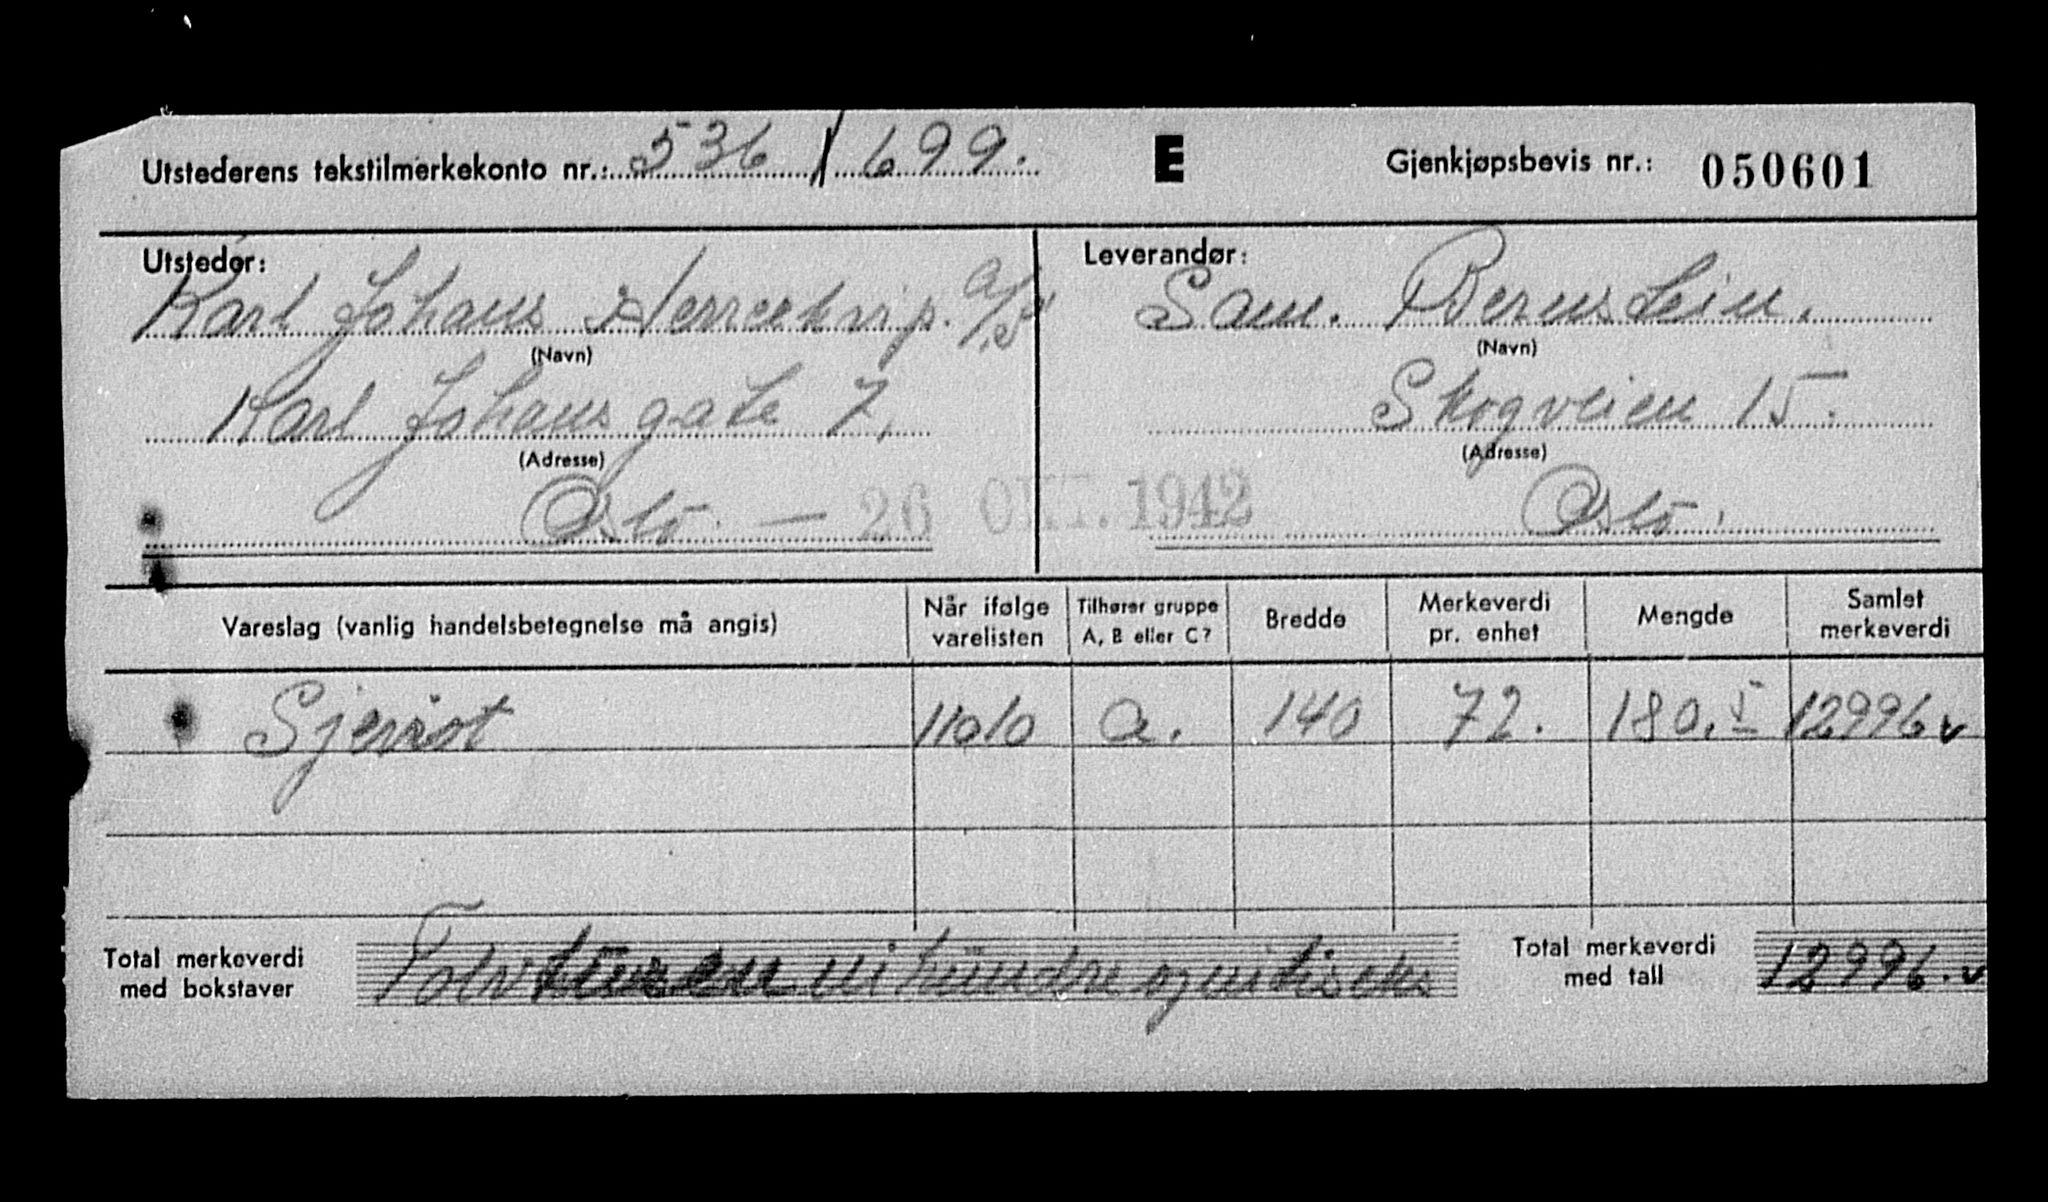 Utstederens tekstilmerkekonto nr.: 536/699. E Gjenkjøpsbevis nr.: 050601
Utsteder: Leverandør:
Karl Johans Herreekvip. A/S Sam. Bernstein.
(Navn) (Navn)
Karl Johansgate 7, Skogveien 15.
(Adresse) (Adresse)
Oslo. — 26 OKT. 1942 Oslo.
Vareslag (vanlig handelsbetegnelse må angis) Når ifølge varelisten Tilhører gruppe A, B eller C? Bredde Merkeverdi pr. enhet Mengde Samlet merkeverdi
11010 a. 140 72. 180.5 12996 v
Total merkeverdi med bokstaver Tolvtusen nihundreognittiseks Total merkeverdi med tall 12996. v